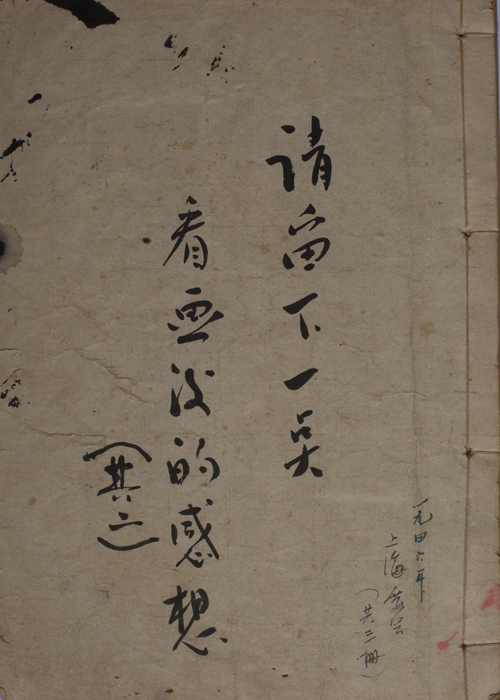 请留下一奌
看画後的感想
（其二）
一九四六年
上海
（共三册）